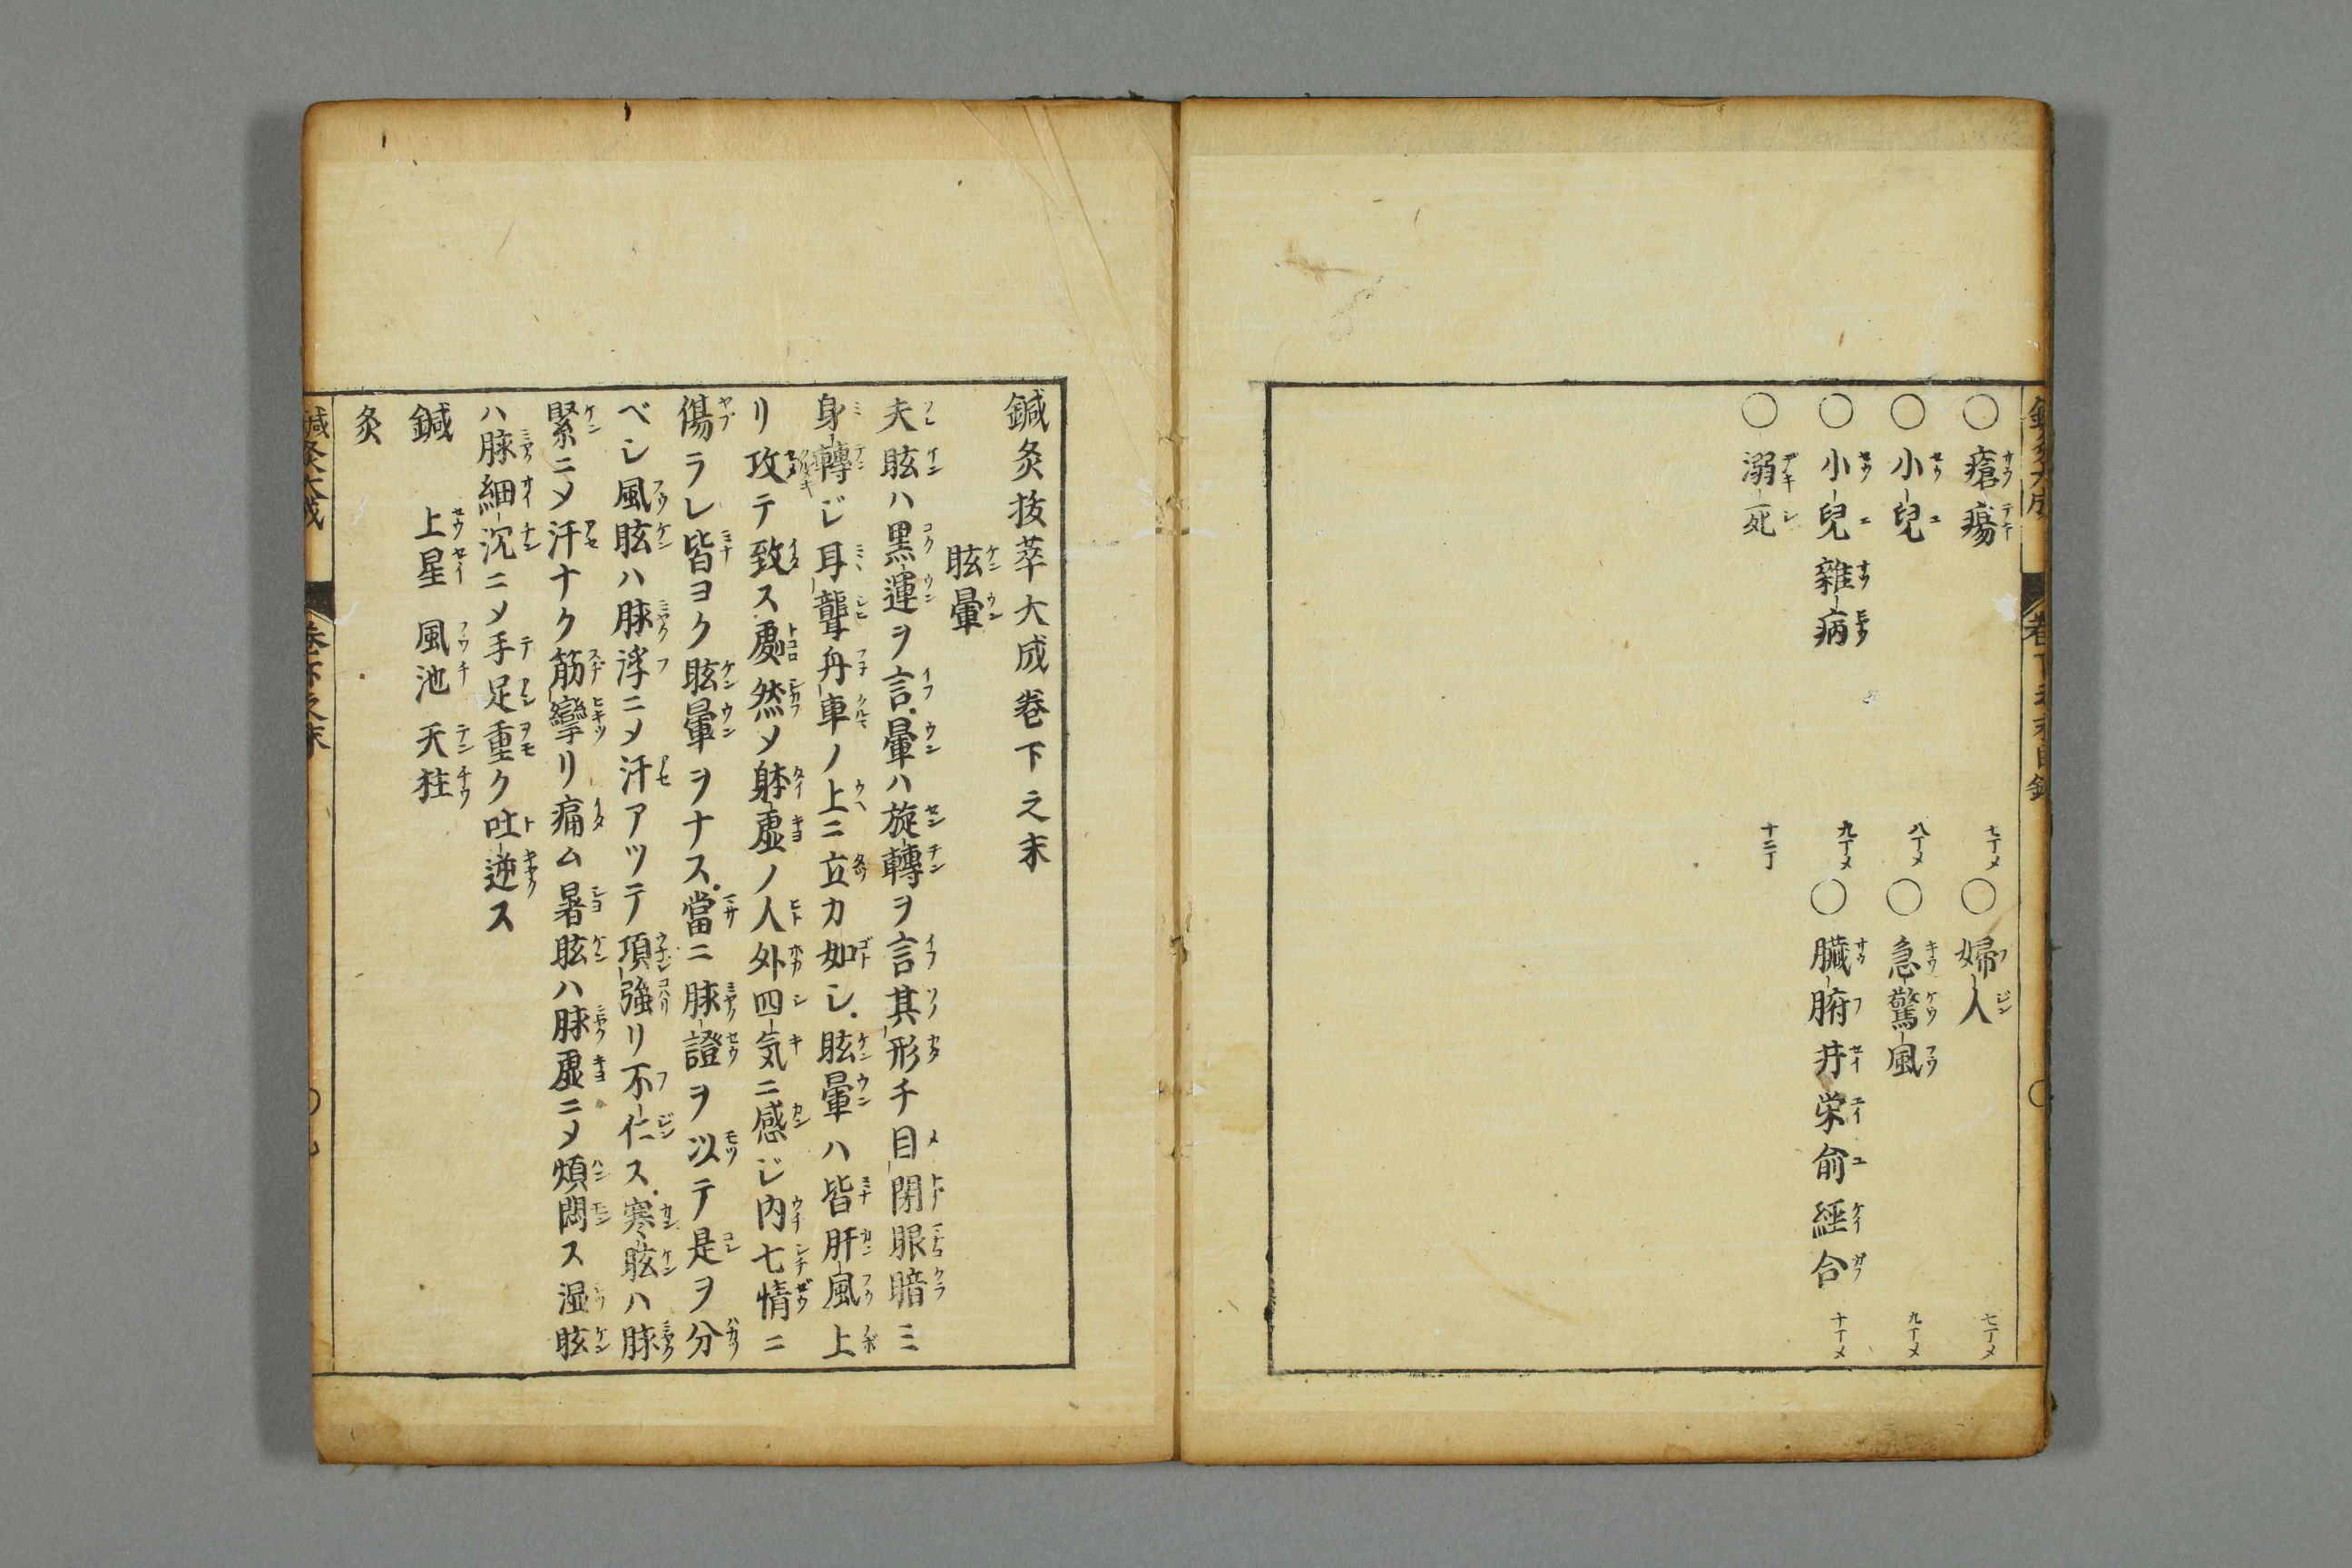 〇瘡瘍 七丁メ 〇婦人 七丁メ
〇小兒 八丁メ 〇急驚風 九丁メ
〇小兒雜病 九丁メ 〇臓腑井栄俞經合 十丁メ
〇溺死 十二丁
鍼灸抜萃大成卷下之末
眩暈
夫眩ハ黒運ヲ言暈ハ旋轉ヲ言其形チ目閉眼暗ミ
身轉ジ耳聾舟車ノ上ニ立カ如シ眩暈ハ皆肝風上
リ攻テ致ス䖏然メ躰虚ノ人外四気ニ感ジ内七情ニ
傷ラレ皆ヨク眩暈ヲナス當ニ脉證ヲ以テ是ヲ分
ベシ風眩ハ脉浮ニメ汗アツテ項強リ不仁ス寒眩ハ脉
緊ニメ汗ナク筋攣リ痛ム暑眩ハ脉虚ニメ煩悶ス湿眩
ハ脉細沉ニメ手足重ク吐逆ス
鍼 上星 風池 天柱
灸
鍼灸大成 卷下之末